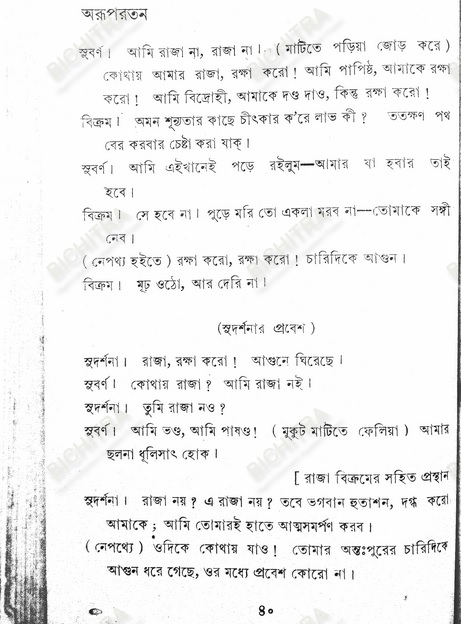 অরূপরতন
সুবর্ণ। আমি রাজা না, রাজা না। (মাটিতে পড়িয়া জোড় করে)
কোথায় আমার রাজা, রক্ষা করো! আমি পাপিষ্ঠ, আমাকে রক্ষা
করো! আমি বিদ্রোহী, আমাকে দণ্ড দাও, কিন্তু রক্ষা করো!
বিক্রম। অমন শূন্যতার কাছে চীৎকার ক'রে লাভ কী? ততক্ষণ পথ
বের করবার চেষ্টা করা যাক্।
সুবর্ণ। আমি এইখানেই পড়ে রইলুম—আমার যা হবার তাই
হবে।
বিক্রম। সে হবে না। পুড়ে মরি তো একলা মরব না—তোমাকে সঙ্গী
নেব।
(নেপথ্য হইতে) রক্ষা করো, রক্ষা করো! চারিদিকে আগুন।
বিক্রম। মূঢ় ওঠো, আর দেরি না।
(সুদর্শনার প্রবেশ)
সুদর্শনা। রাজা, রক্ষা করো! আগুনে ঘিরেছে।
সুবর্ণ। কোথায় রাজা? আমি রাজা নই।
সুদর্শনা। তুমি রাজা নও?
সুবর্ণ। আমি ভণ্ড, আমি পাষণ্ড! (মুকুট মাটিতে ফেলিয়া) আমার
ছলনা ধূলিসাৎ হোক।
[ রাজা বিক্রমের সহিত প্রস্থান
সুদর্শনা। রাজা নয়? এ রাজা নয়? তবে ভগবান হুতাশন, দগ্ধ করো
আমাকে; আমি তোমারই হাতে আত্মসমর্পণ করব।
(নেপথ্যে) ওদিকে কোথায় যাও! তোমার অন্তঃপুরের চারিদিকে
আগুন ধরে গেছে, ওর মধ্যে প্রবেশ কোরো না।
৪০
BICHITRA